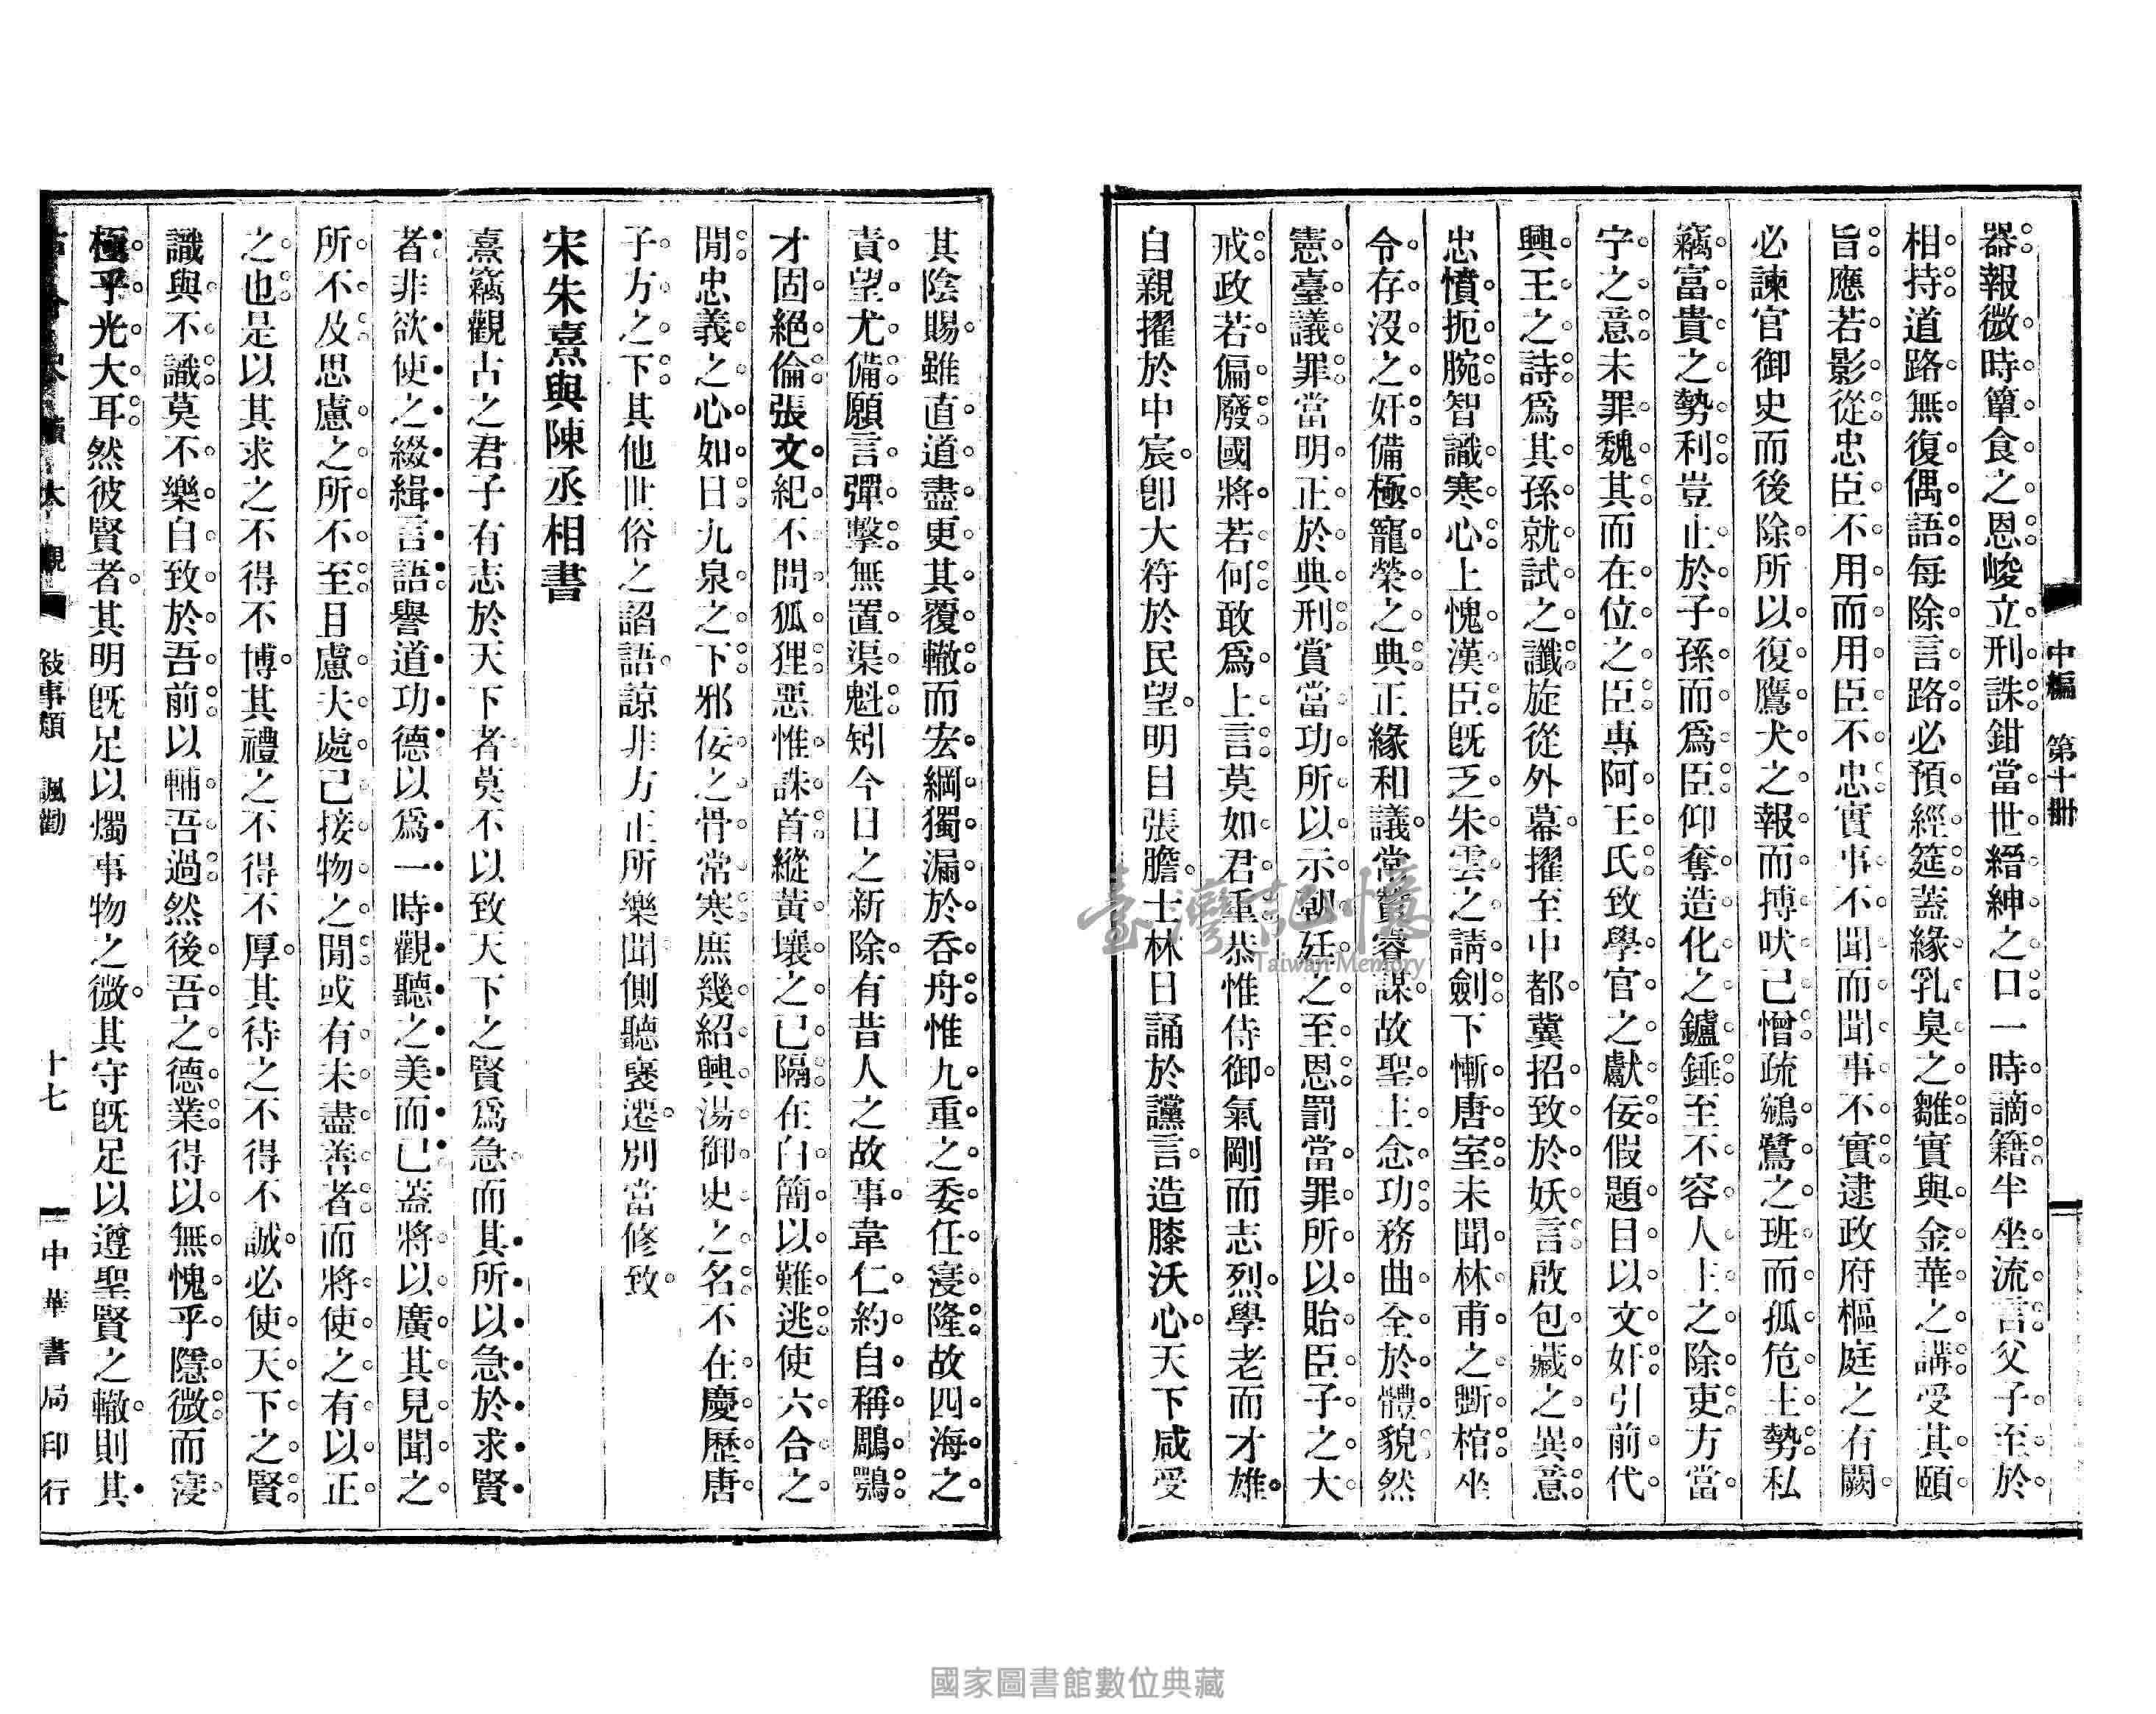 中編　第十冊
器報微時簞食之恩峻立刑誅鉗當世縉紳之口一時謫籍半坐流言父子至於
相持道路無復偶語每除言路必預經筵蓋緣乳臭之雛實與金華之講受其頤
旨應若影從忠臣不用而用臣不忠實事不聞而聞事不實逮政府樞庭之有闕
必諫官御史而後除所以復鷹犬之報而搏吠己憎疏鵷鷺之班而孤危主勢私
竊富貴之勢利豈止於子孫而爲臣仰奪造化之鑪錘至不容人主之除吏方當
宁之意未罪魏其而在位之臣專阿王氏致學官之獻佞假題目以文奸引前代
興王之詩爲其孫就試之讖旋從外幕擢至中都冀招致於妖言啟包藏之異意
忠憤扼腕智識寒心上愧漢臣旣乏朱雲之請劍下慚唐室未聞林甫之斵棺坐
令存沒之奸備極寵榮之典正緣和議常贊睿謀故聖主念功務曲全於體貌然
憲臺議罪當明正於典刑賞當功所以示朝廷之至恩罰當罪所以貽臣子之大
戒政若偏廢國將若何敢爲上言莫如君重恭惟侍御氣剛而志烈學老而才雄
自親擢於中宸卽大符於民望明目張膽士林日誦於讜言造膝沃心天下咸受
其陰賜雖直道盡更其覆轍而宏綱獨漏於吞舟惟九重之委任寖隆故四海之
責望尤備願言彈擊無置渠魁矧今日之新除有昔人之故事韋仁約自稱鵰鶚
才固絕倫張文紀不問狐狸惡惟誅首縱黃壤之已隔在白簡以難逃使六合之
閒忠義之心如日九泉之下邪佞之骨常寒庶幾紹興湯御史之名不在慶歷唐
子方之下其他世俗之諂語諒非方正所樂聞側聽褒遷別當修致
宋朱熹與陳丞相書
熹竊觀古之君子有志於天下者莫不以致天下之賢爲急而其所以急於求賢
者非欲使之綴緝言語譽道功德以爲一時觀聽之美而已蓋將以廣其見聞之
所不及思慮之所不至且慮夫處己接物之閒或有未盡善者而將使之有以正
之也是以其求之不得不博其禮之不得不厚其待之不得不誠必使天下之賢
識與不識莫不樂自致於吾前以輔吾過然後吾之德業得以無愧乎隱微而寖
極乎光大耳然彼賢者其明旣足以燭事物之微其守旣足以遵聖賢之轍則其
大觀　敍事類　諷勸　十七　中華書局印行
臺灣記憶
Taiwan Memory
國家圖書館數位典藏